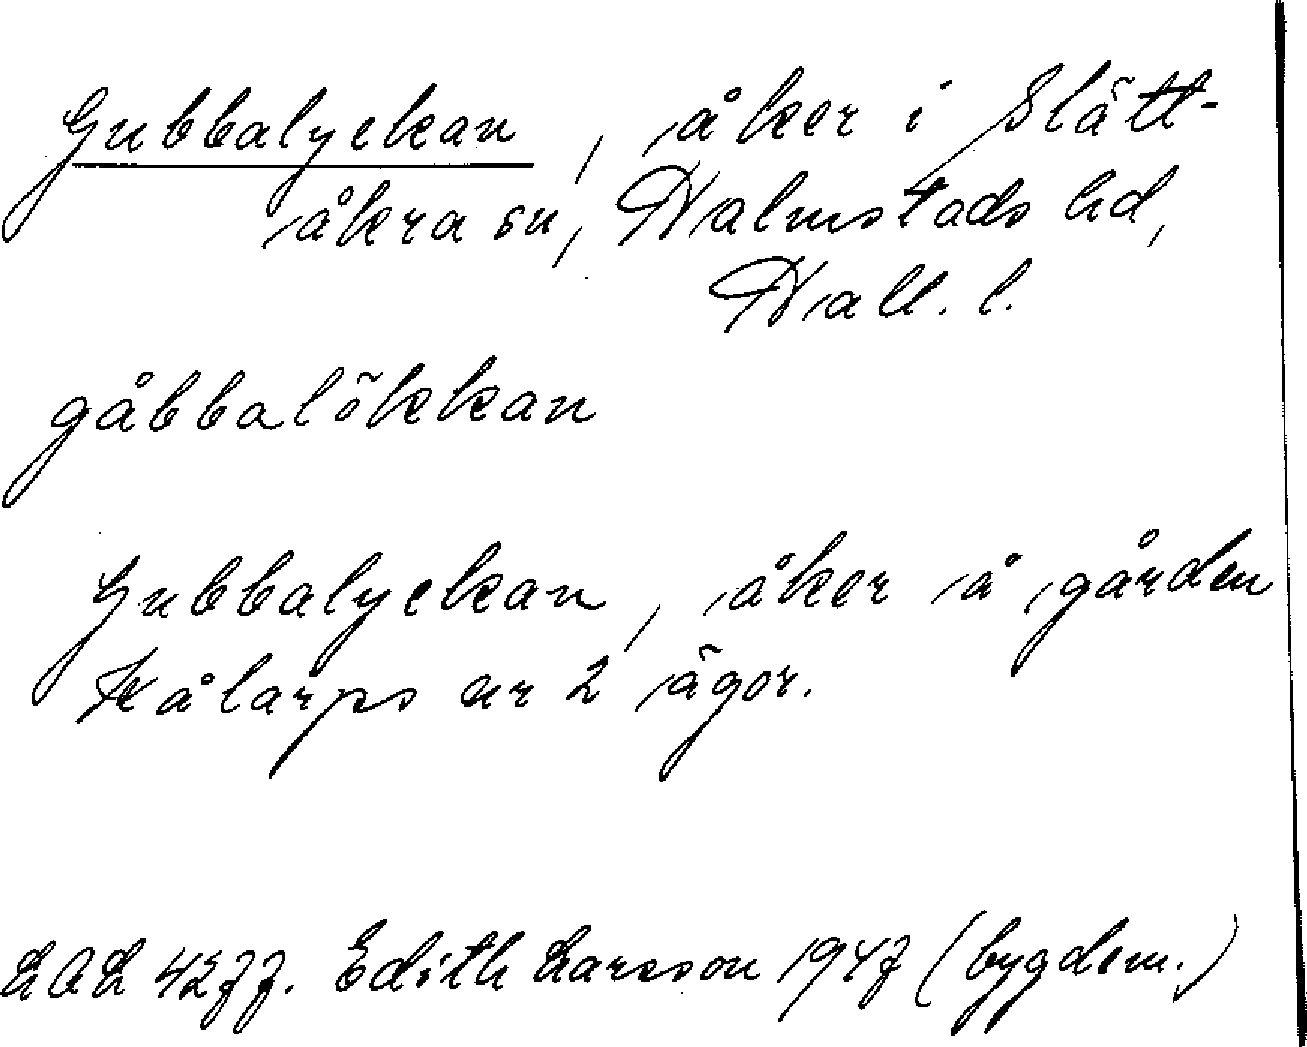 Gubbalyckan, åker i Slätt-
åkra sn, Halmstads hd,
Hall. l.
gåbbalökkan
Gubbalyckan, åker å gården
Kålarps nr 2 ägor.
LAL 4277. Edith Larsson 1947 (bygdem.)